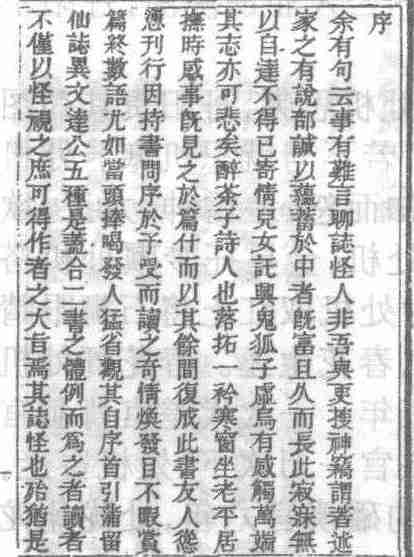 序
余有句云事有難言聊誌怪人非吾與更搜神竊謂著述
家之有說部誠以蘊蓄於中者既富且久而長此寂寞無
以自達不得已寄情兒女託興鬼狐子虛烏有感觸萬端
其志亦可悲矣醉茶子詩人也落拓一衿寒窗坐老平居
撫時感事既見之於篇什而以其餘間復成此書友人慫
慂刊行因持書問序於予受而讀之奇情煥發目不暇賞
篇終數語尤如當頭捧喝發人猛省觀其自序首引蒲留
仙誌異文達公五種是蓋合二書之體例而為之者讀者
不僅以怪視之庶可得作者之大旨焉其誌怪也殆猶是